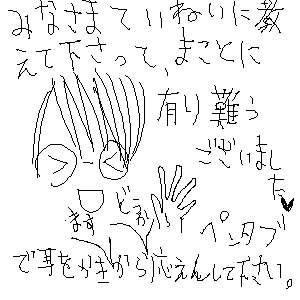 みなさまていねいに教
えて下さって、まことに
有り難う
ございまし
た♥
ペンタブ
で耳をかきから応えんして下さい。